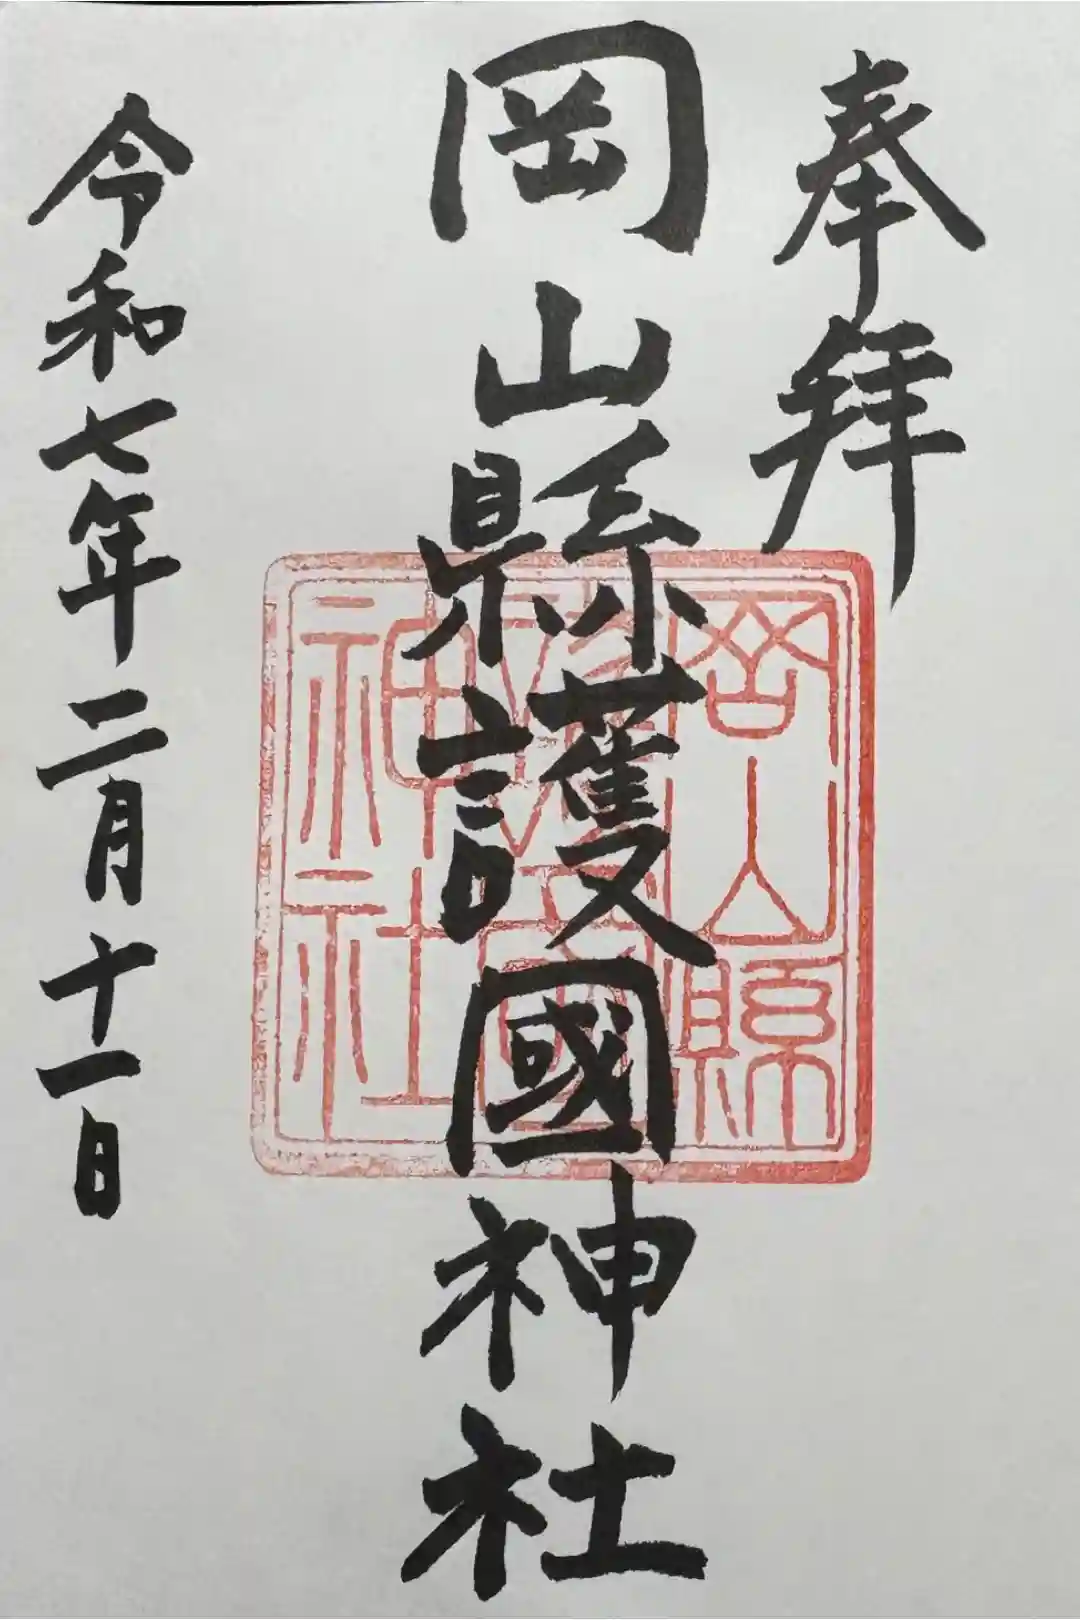 奉拝
岡山縣護國神社
岡山縣
護國
神社
令和七年二月十一日